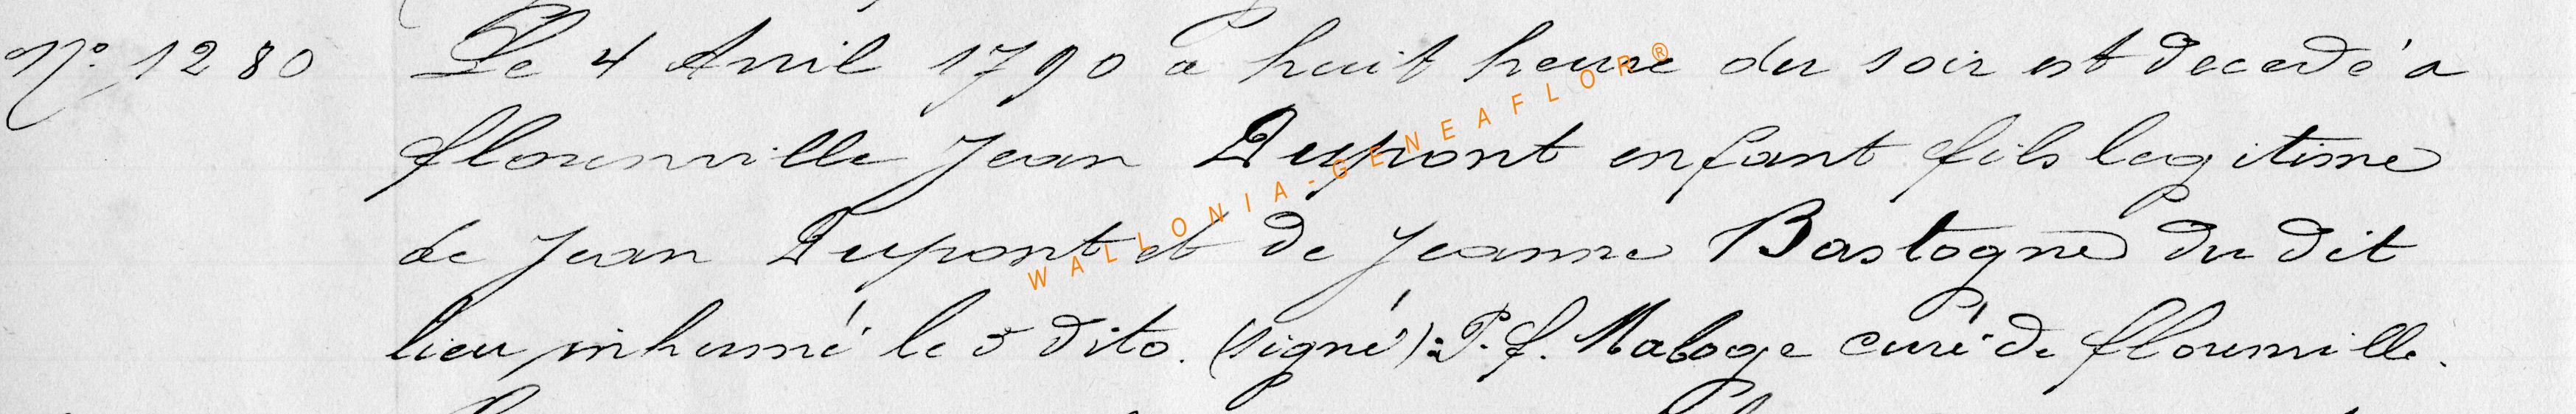 N° 1280 Le 4 Avril 1790 à huit heure du soir est decedé à
florenville Jean Dupont enfant fils legitime
de Jean Dupont et de Jeanne Bastogne du dit
lieu inhumé le 5 dito. (signé): P. f. Maboge curé de florenville.
WALLONIA-GENEAFLOR®